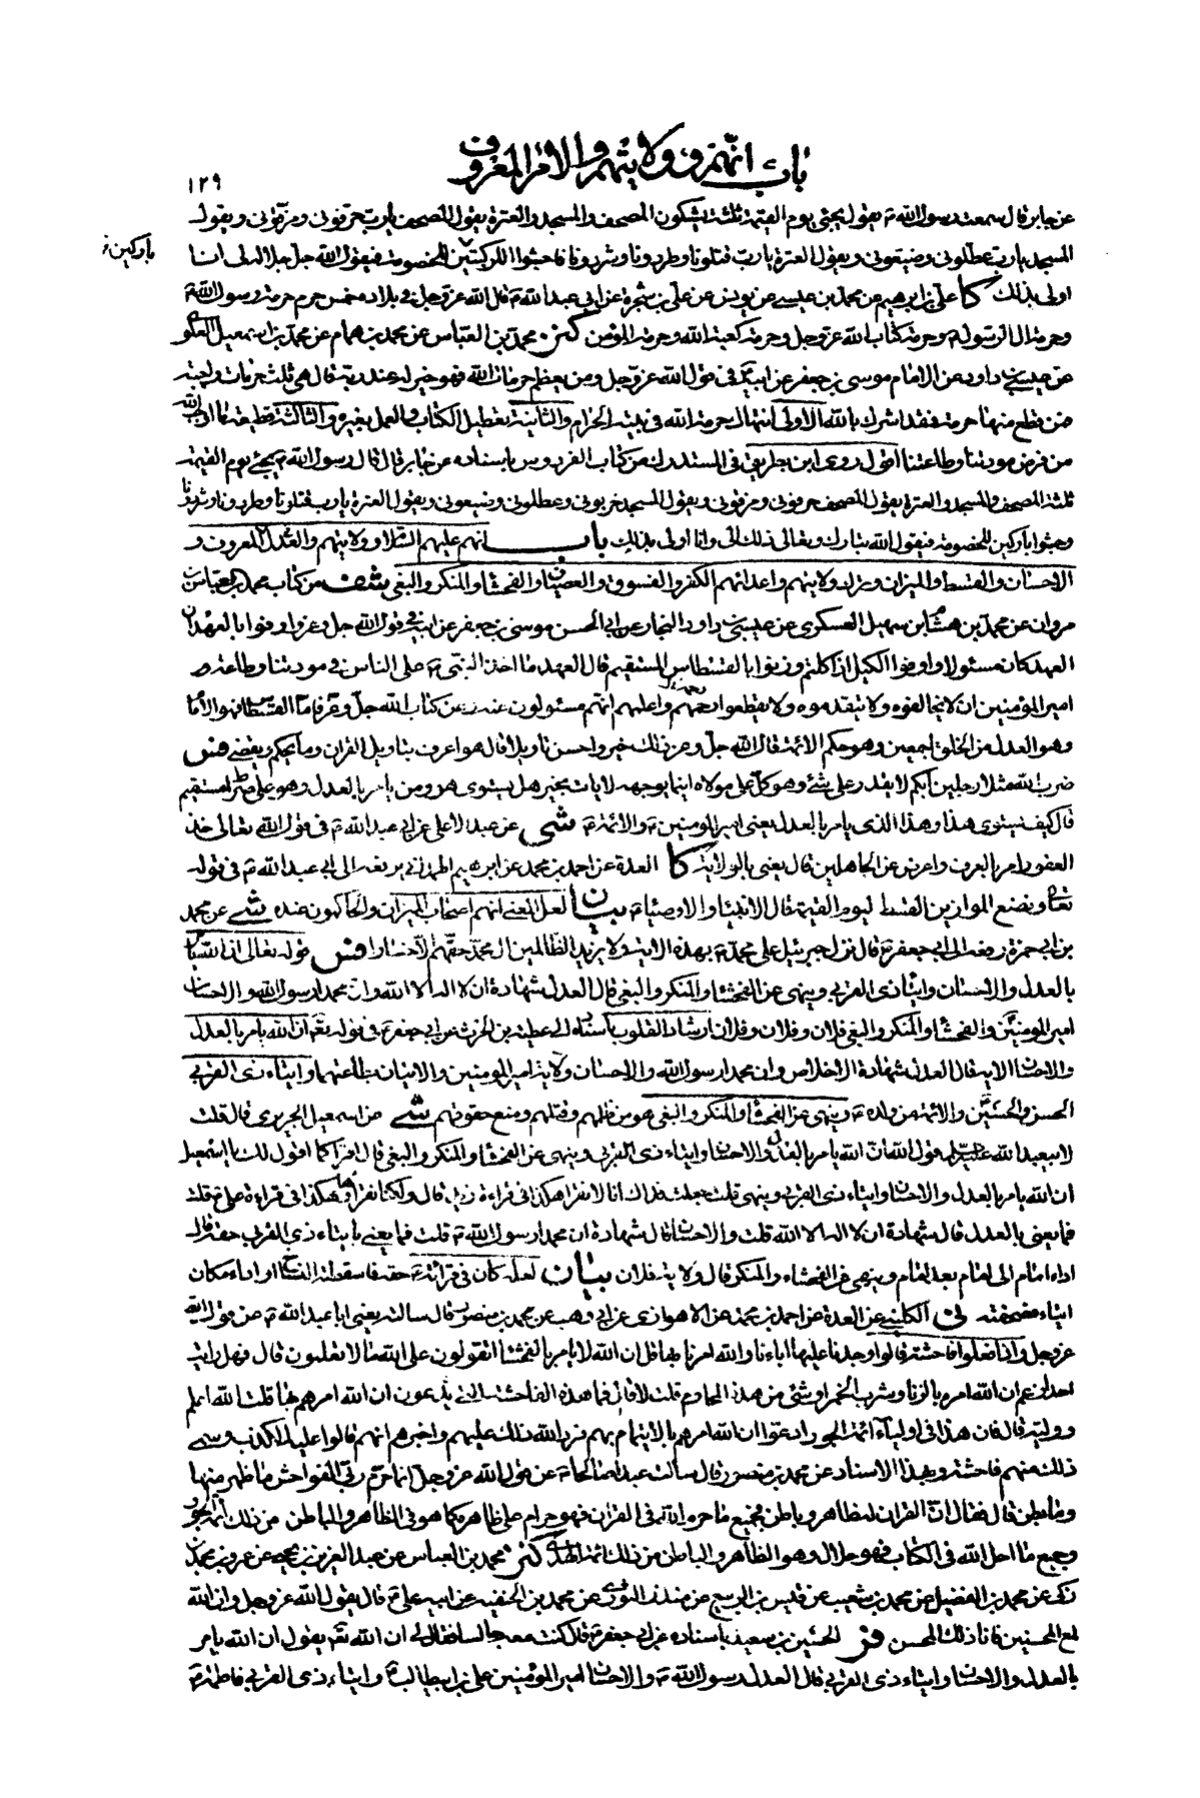 باب انهم و ولايتهم والامر المعروف
١٢٩
عن جابر قال سمعت رسول الله ص يقول يجئ يوم القيمة ثلثة يشكون المصحف والمسجد والعترة يقول المصحف يارب حرقونى ومزقونى ويقول
المسجد يارب عطلونى وضيعونى ويقول العترة يارب قتلونا وطردونا وشردونا فاجثوا للركبتين للخصومة فيقول الله جل جلاله لى انا
باركين
اولى بذلك كا على بن ابرهيم عن محمد بن عيسى عن يونس عن على بن شجرة عن ابى عبد الله ع قال الله عز وجل فى بلاده خمس حرم حرمة رسول الله ص
وحرمة ال الرسول ص وحرمة كتاب الله عز وجل وحرمة كعبة الله وحرمة المؤمن كنز محمد بن العباس عن محمد بن همام عن محمد بن اسمعيل العلوى
عن عيسى بن داود عن الامام موسى بن جعفر عن ابيه ع فى قول الله عز وجل ومن يعظم حرمات الله فهو خير له عند ربه قال هى ثلث حرمات واجبة
فمن قطع منها حرمة فقد اشرك بالله الاولى انتهاك حرمة الله فى بيته الحرام والثانية تعطيل الكتاب والعمل بغيره والثالثة قطيعة ما اوجب الله
من فرض مودتنا وطاعتنا اقول روى ابن بطريق فى المستدرك من كتاب الفردوس باسناده عن جابر قال قال رسول الله ص يجئ يوم القيمة
ثلثة المصحف والمسجد والعترة يقول المصحف حرقونى ومزقونى ويقول المسجد خربونى وعطلونى وضيعونى ويقول العترة يارب قتلونا وطردونا وشردونا
وجثوا باركين للخصومة فيقول الله تبارك وتعالى ذلك الى وانا اولى بذلك باب انهم عليهم السلام وولايتهم العدل والمعروف و
الاحسان والقسط والميزان وترك ولايتهم واعدائهم الكفر والفسوق والعصيان والفحشاء والمنكر والبغى شف من كتاب محمد بن العباس بن
مروان عن محمد بن همام بن سهيل العسكرى عن عيسى بن داود النجار عن ابى الحسن موسى بن جعفر عن ابيه فى قول الله جل وعز اوفوا بالعهد ان
العهد كان مسئولا واوفوا الكيل اذا كلتم وزنوا بالقسطاس المستقيم قال العهد ما اخذ النبى ص على الناس فى مودتنا وطاعة
امير المؤمنين ان لا يخالفوه ولا يتقدموه ولا يقطعوا رحمه واعلمهم انهم مسئولون عنه وعن كتاب الله جل وعز فاما القسطاس فهو الامام
وهو العدل من الخلق اجمعين وهو حكم الائمة قال الله جل وعز ذلك خير واحسن تاويلا قال هو اعرف بتاويل القران وما يحكم ويقضى فس
ضرب الله مثلا رجلين ابكم لا يقدر على شئ وهو كل على مولاه اينما يوجهه لا يات بخير هل يستوى هو ومن يامر بالعدل وهو على صراط مستقيم
قال كيف يستوى هذا وهذا الذى يامر بالعدل يعنى امير المؤمنين ع والائمة ع شى عن عبد الاعلى عن ابى عبد الله ع فى قول الله تعالى خذ
العفو وامر بالعرف واعرض عن الجاهلين قال يعنى بالولاية كا العدة عن احمد بن محمد عن ابرهيم الهمدانى يرفعه الى ابى عبد الله ع فى قوله
تعالى ونضع الموازين القسط ليوم القيمة قال الانبياء والاوصياء ع بيان لعل المعنى انهم اصحاب الميزان والحاكمون عنده شى عن محمد
بن ابى حمزة رفعه الى ابى جعفر ع قال نزل جبرئيل على محمد ص بهذه الاية ولا يزيد الظالمين ال محمد حقهم الا خسارا فس قوله تعالى ان الله يامر
بالعدل والاحسان وايتاء ذى القربى وينهى عن الفحشاء والمنكر والبغى قال العدل شهادة ان لا اله الا الله وان محمدا رسول الله ص والاحسان
امير المؤمنين والفحشاء والمنكر والبغى فلان وفلان وفلان ارشاد القلوب باسناده الى عطية بن الحرث عن ابى جعفر ع فى قوله تعالى ان الله يامر بالعدل
والاحسان الاية قال العدل شهادة الاخلاص وان محمدا رسول الله والاحسان ولاية امير المؤمنين والاتيان بطاعتهما وايتاء ذى القربى
الحسن والحسين والائمة من ولده ع وينهى عن الفحشاء والمنكر والبغى هو من ظلمهم وقتلهم ومنع حقوقهم شى عن اسمعيل الجريرى قال قلت
لابى عبد الله عليه السلام قول الله ان الله يامر بالعدل والاحسان وايتاء ذى القربى وينهى عن الفحشاء والمنكر والبغى قال اقرأ كما اقول لك يا اسمعيل
ان الله يامر بالعدل والاحسان وايتاء ذى القربى وينهى قلت جعلت فداك انا لا نقرأ هكذا فى قراءة زيد قال ولكنا نقرأها هكذا فى قراءة على ع قلت
فما يعنى بالعدل قال شهادة ان لا اله الا الله قلت والاحسان قال شهادة ان محمدا رسول الله ص قلت فما يعنى بايتاء ذى القربى حقه قال
اداء امام الى امام بعد امام وينهى عن الفحشاء والمنكر قال ولاية فلان بيان لعله كان فى قرائته ع حقه فاسقطته النساخ او اداء مكان
ايتاء فصحفته نى الكلينى عن العدة عن احمد بن محمد عن الاهوازى عن ابى وهب عن محمد بن منصور قال سالته يعنى ابا عبد الله ع عن قول الله
عز وجل واذا فعلوا فاحشة قالوا وجدنا عليها اباءنا والله امرنا بها قل ان الله لا يامر بالفحشاء اتقولون على الله ما لا تعلمون قال فهل رايت
احدا زعم ان الله امره بالزنا وشرب الخمر او شئ من هذه المحارم قلت لا قال فما هذه الفاحشة التى يدعون ان الله امرهم بها قلت الله اعلم
ووليه قال فان هذا فى اولياء ائمة الجور ادعوا ان الله امرهم بالايتمام بهم فرد الله ذلك عليهم واخبرهم انهم قالوا عليه الكذب وسمى
ذلك منهم فاحشة وبهذا الاسناد عن محمد بن منصور قال سالت عبدا صالحا ع عن قول الله عز وجل انما حرم ربى الفواحش ما ظهر منها
وما بطن قال فقال ان القران له ظاهر وباطن فجميع ما حرم الله فى القران فهو حرام على ظاهره كما هو فى الظاهر والباطن من ذلك ائمة الجور
وجميع ما احل الله فى الكتاب فهو حلال وهو الظاهر والباطن من ذلك ائمة الهدى كنز محمد بن العباس عن عبد العزيز بن يحيى عن عمرو بن محمد بن
زكى عن محمد بن الفضيل عن محمد بن شعيب عن قيس بن الربيع عن منذر الثورى عن محمد بن الحنفية عن ابيه على ع قال يقول الله عز وجل وان الله
لمع المحسنين فانا ذلك المحسن فر الحسين بن سعيد باسناده عن ابى جعفر ع قال كنت معه جالسا فقال لى ان الله تعالى يقول ان الله يامر
بالعدل والاحسان وايتاء ذى القربى قال العدل رسول الله ص والاحسان امير المؤمنين على بن ابيطالب ع وايتاء ذى القربى فاطمة ع